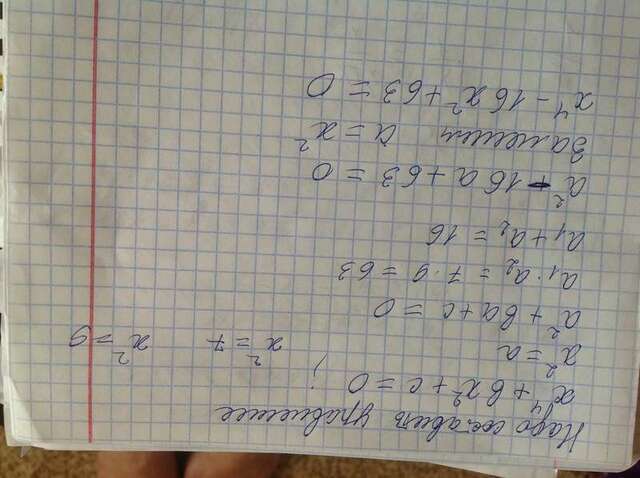 Надо составить уравнение
x⁴ + bx² + c = 0 ;
x² = a          x² = 7     x² = 9
a² + ba + c = 0
a₁ · a₂ = 7 · 9 = 63
a₁ + a₂ = 16
a² - 16a + 63 = 0
Заменим a = x²
x⁴ - 16x² + 63 = 0